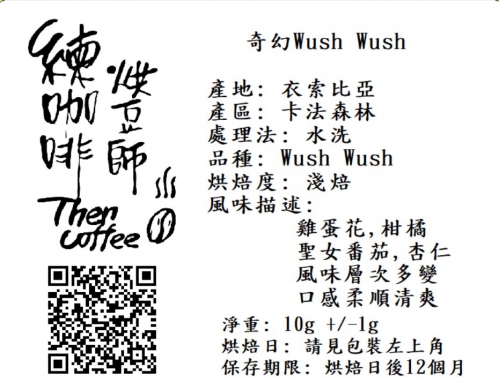 練咖啡
烘豆師
Then
coffee
奇幻Wush Wush
產地: 衣索比亞
產區: 卡法森林
處理法: 水洗
品種: Wush Wush
烘焙度: 淺焙
風味描述:
雞蛋花,柑橘
聖女番茄,杏仁
風味層次多變
口感柔順清爽
淨重: 10g +/-1g
烘焙日: 請見包裝左上角
保存期限: 烘焙日後12個月